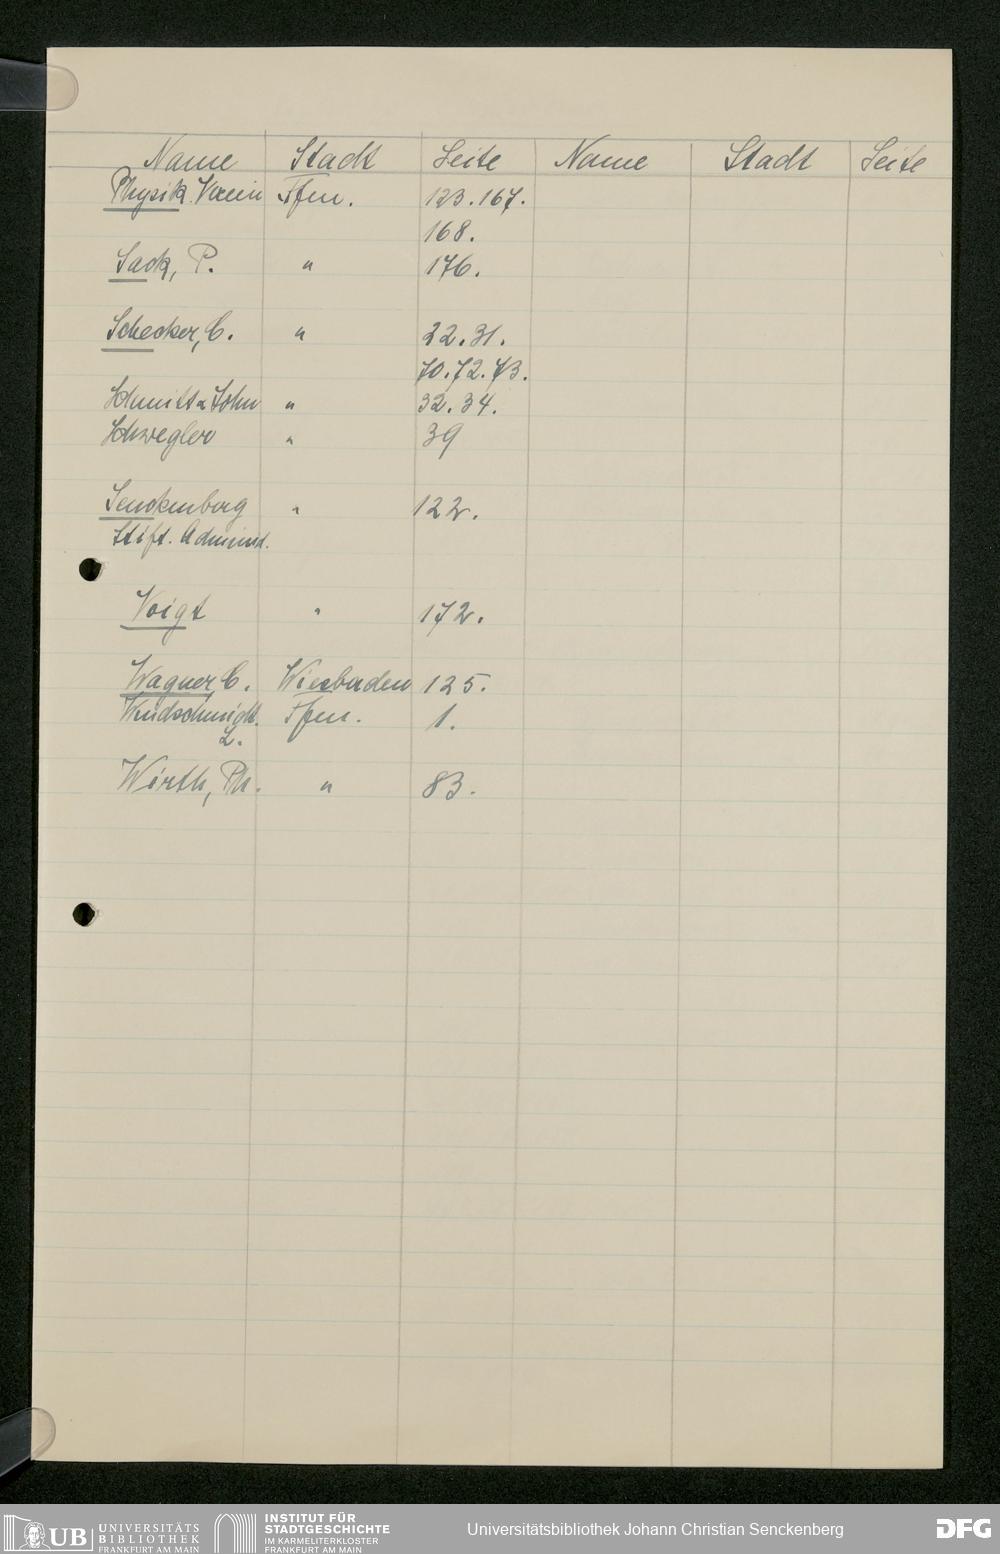 Name Stadt Seite Name Stadt Seite
Physik. Verein Ffm. 123.167.
168.
Sack, P. " 176.
Schecker, C. " 22.31.
70.72.73.
Schmitt & Sohn " 32.34.
Schwegler " 39
Senckenberg " 122.
Stift. Administ.
Voigt " 172.
Wagner, C. Wiesbaden 125.
Ffm. 1.
L.
Wirth, Ph. " 83.
UB UNIVERSITÄTS
BIBLIOTHEK
FRANKFURT AM MAIN
INSTITUT FÜR
STADTGESCHICHTE
IM KARMELITERKLOSTER
FRANKFURT AM MAIN
Universitätsbibliothek Johann Christian Senckenberg
DFG